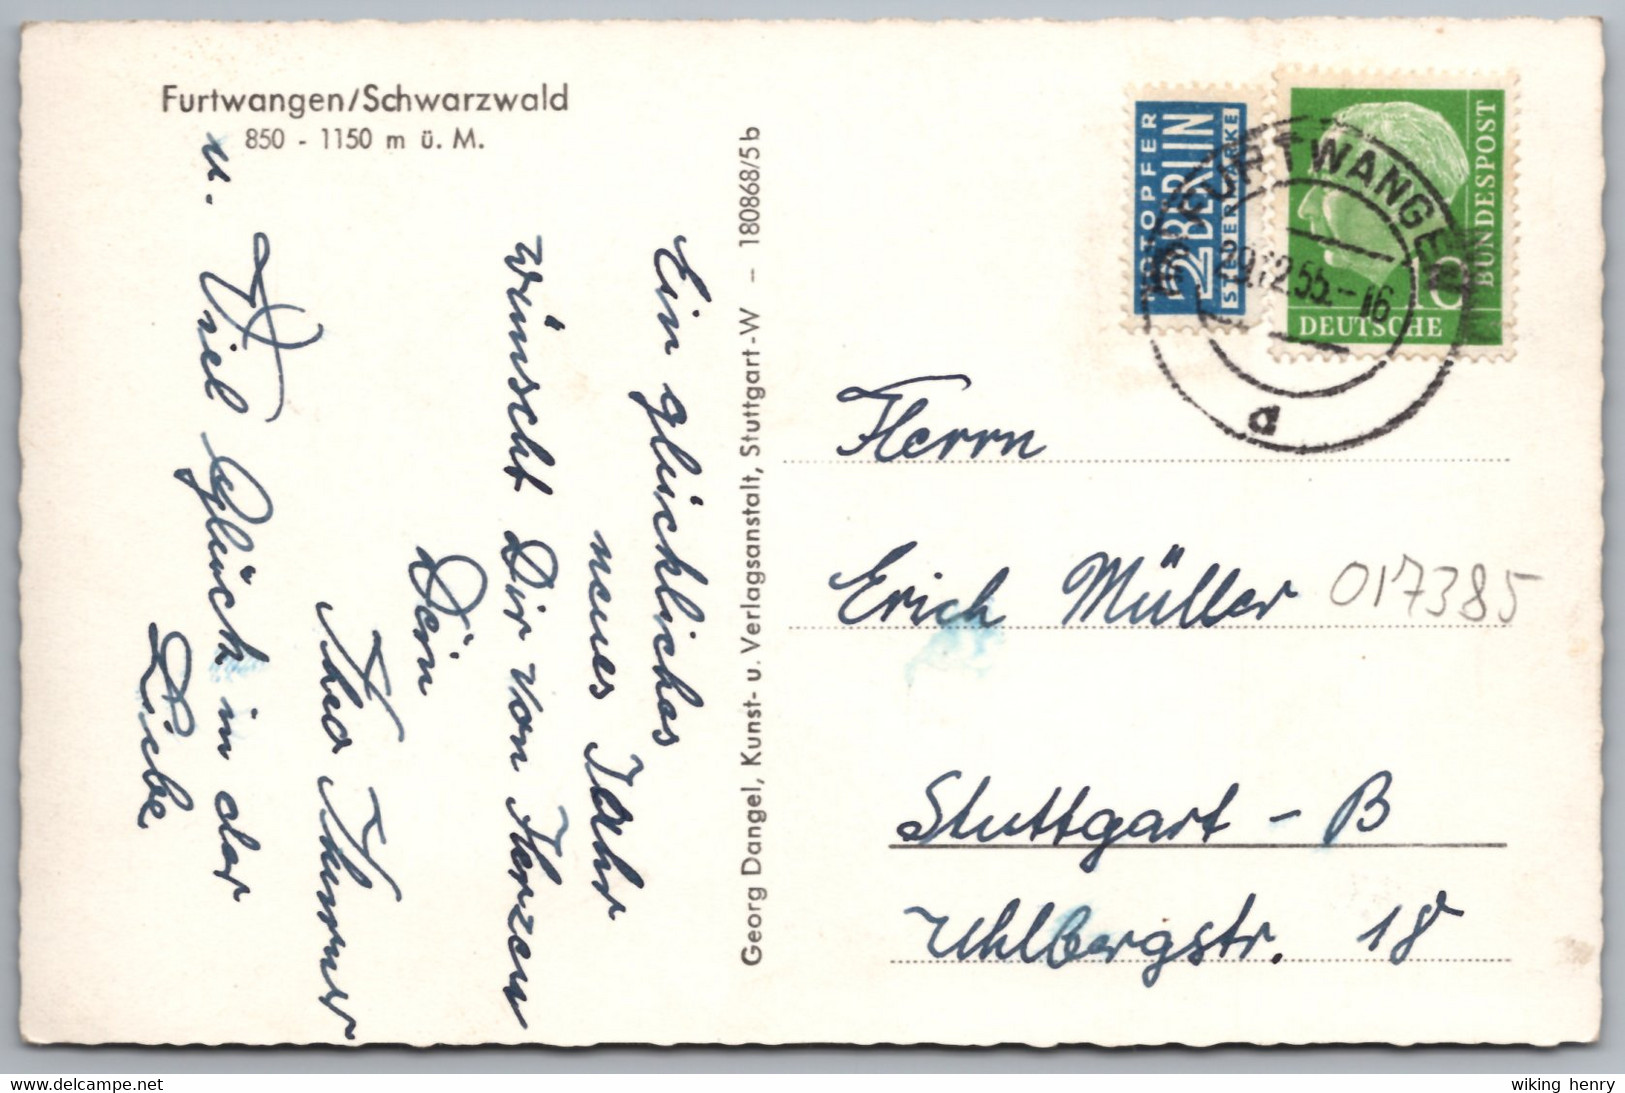 Furtwangen/Schwarzwald
850 - 1150 m ü. M.
Ein glückliches
neues Jahr
wünscht Dir von Herzen
Dein
Theo
u. Viel Glück in der
Liebe
Georg Dangel, Kunst- u. Verlagsanstalt, Stuttgart-W – 180868/5b
NOTOPFER
2 BERLIN
STEUERMARKE
DEUTSCHE
BUNDESPOST
10
FURTWANGEN
29.12.55.-16
a
Herrn
Erich Müller
017385
Stuttgart - B
Uhlbergstr. 18
delcampe.net
wiking henry